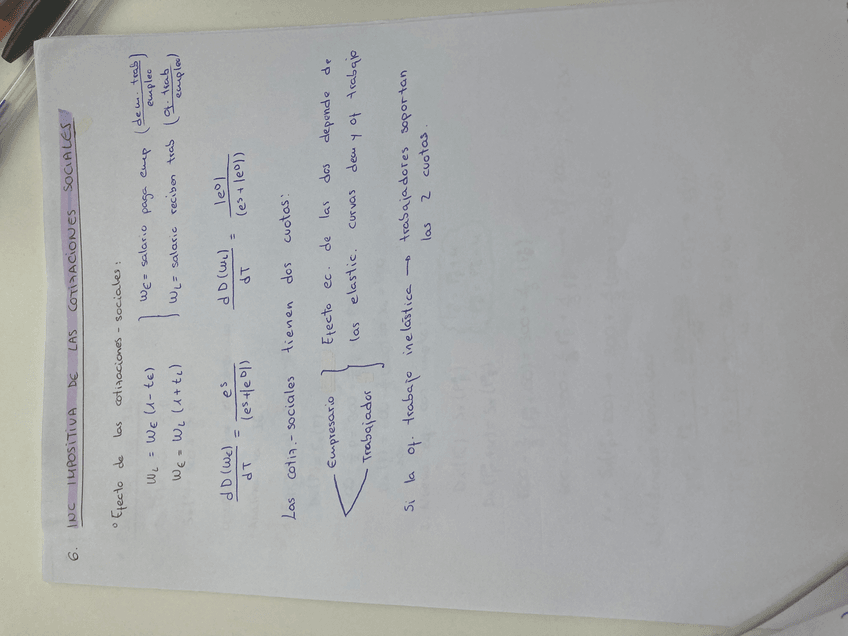 6. INC IMPOSITIVA DE LAS COTIZACIONES SOCIALES
° Efecto de las cotizaciones - sociales:
W_L = W_E (1 - t_E) } W_E = salario paga emp (dem. trab / empleo)
W_E = W_L (1 + t_L) } W_L = salario reciben trab (of. trab / empleo)
dD(W_E) / dT = e^s / (e^s + |e^D|)    dD(W_L) / dT = |e^D| / (e^s + |e^D|)
Las cotiz. - sociales tienen dos cuotas:
Empresario } Efecto ec. de las dos depende de
Trabajador } las elastic. curvas dem y of trabajo
Si la of. trabajo inelástica → trabajadores soportan
las 2 cuotas.